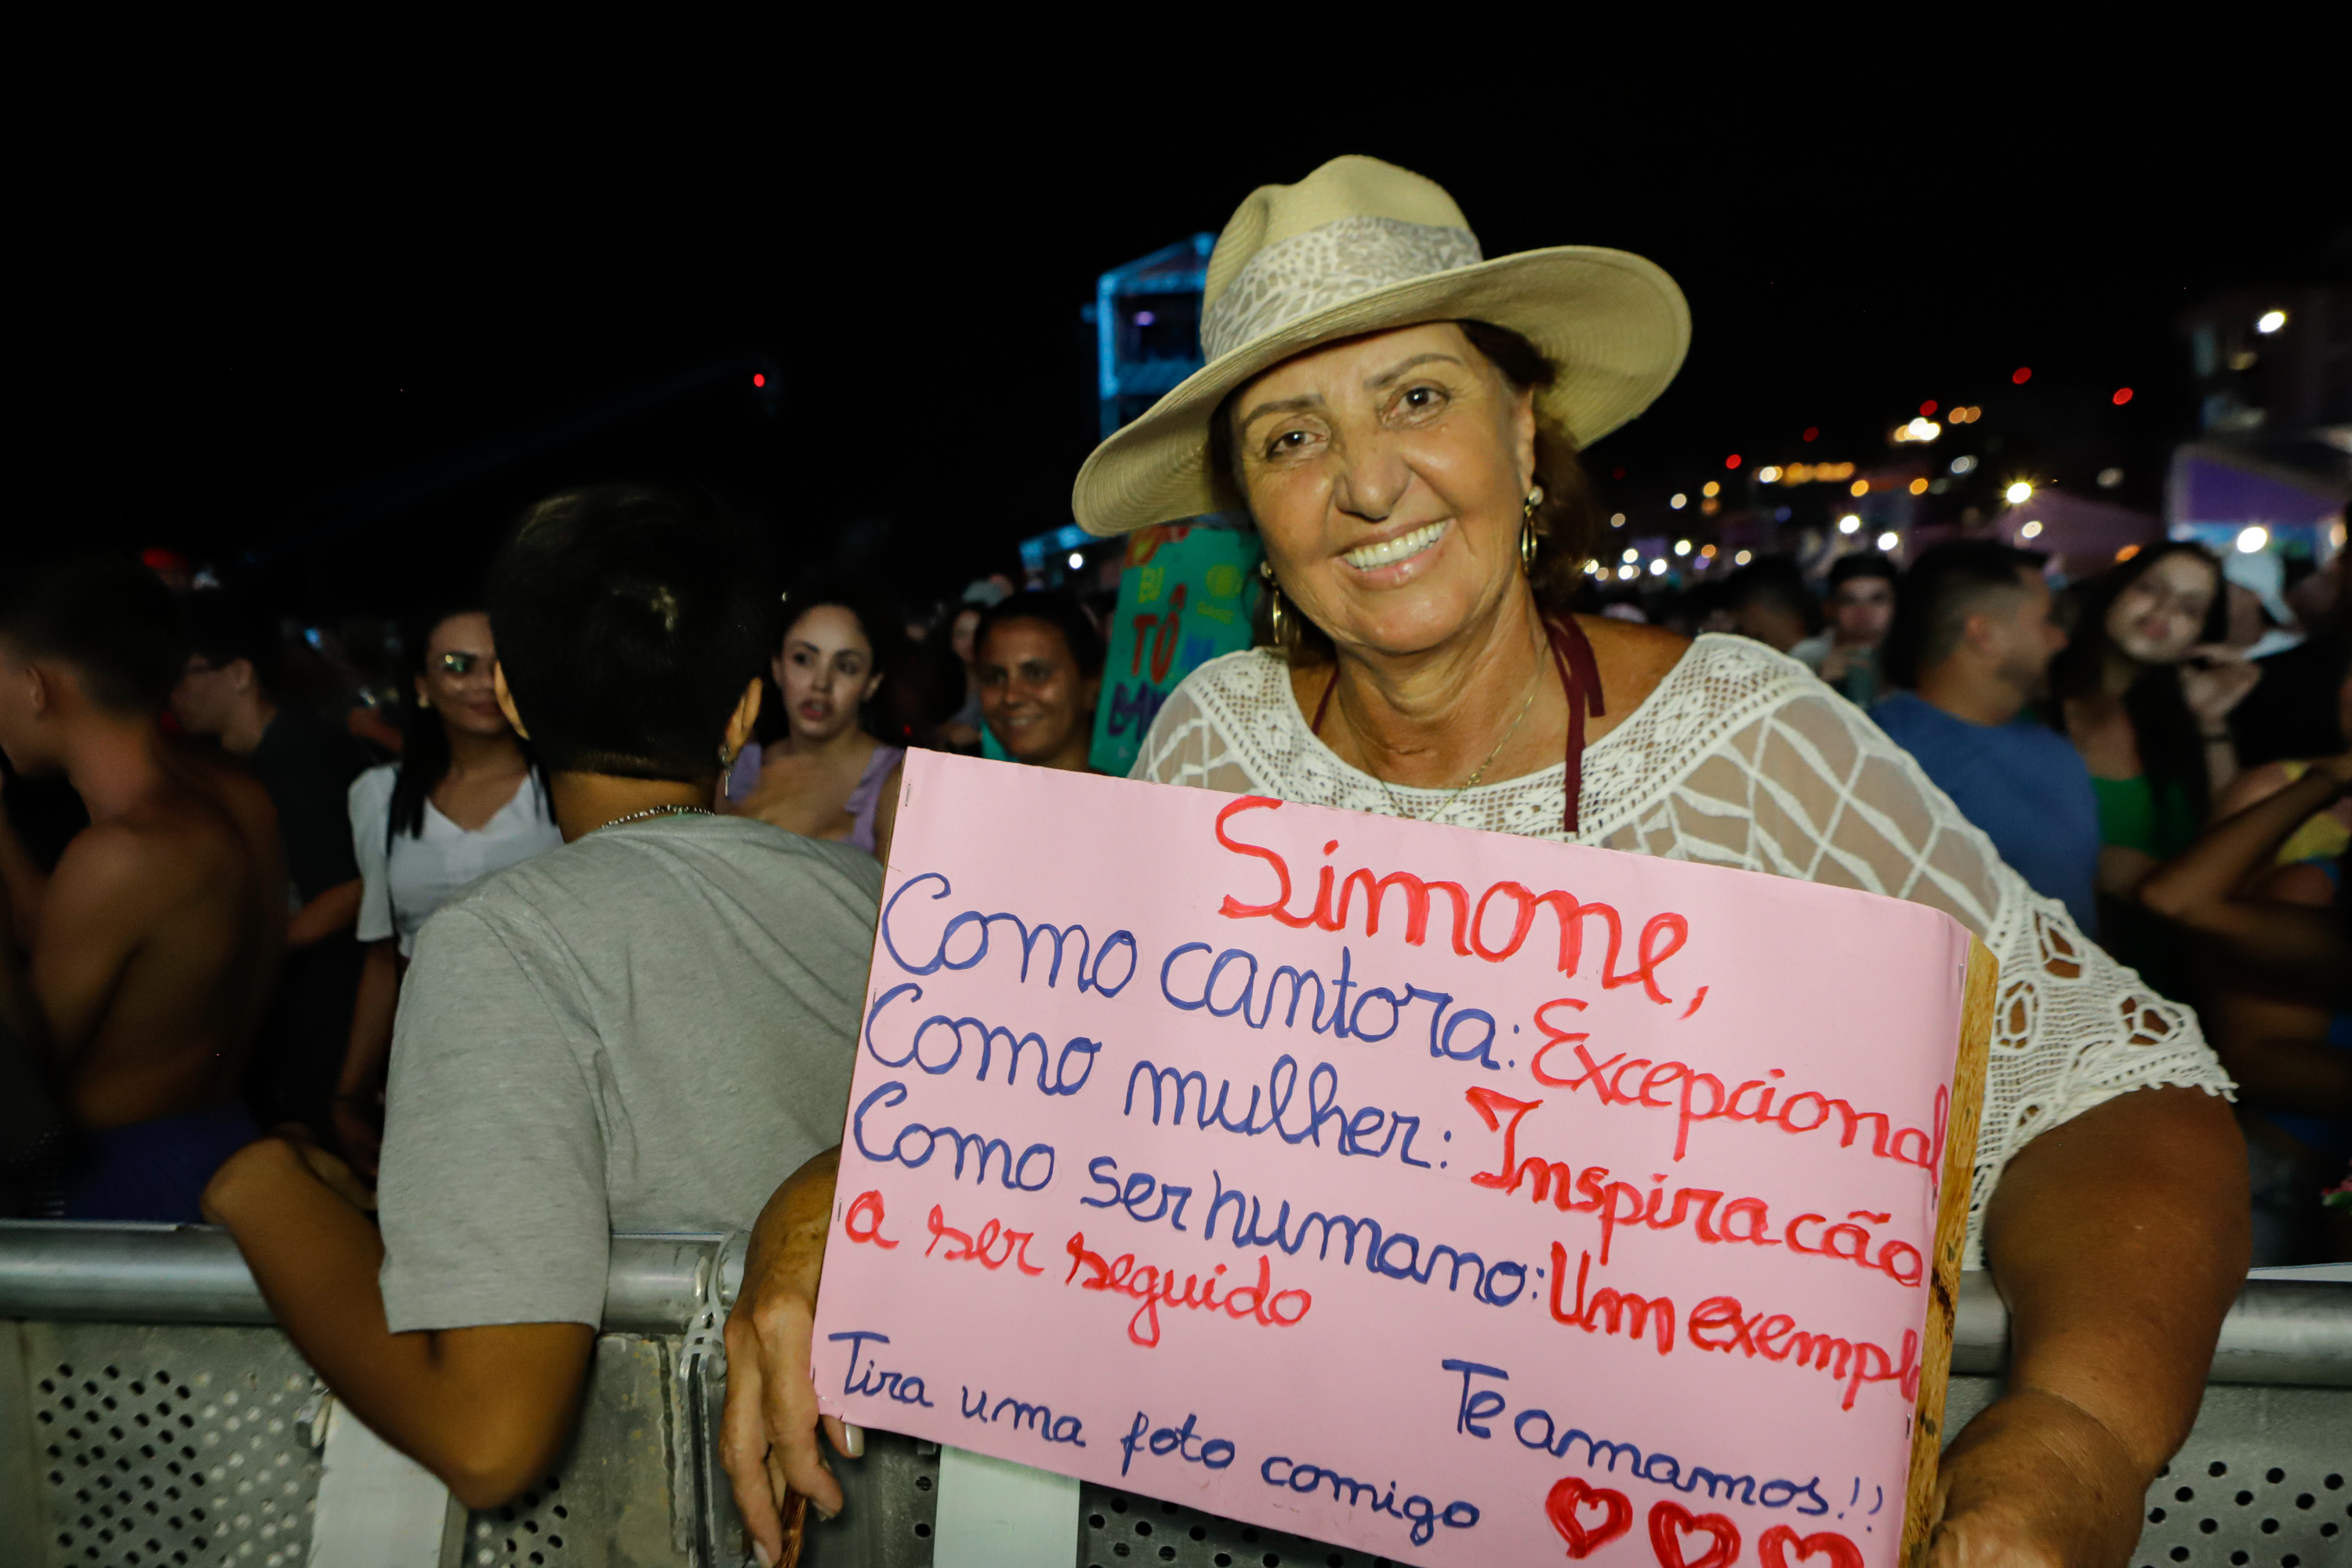 Simone,
Como cantora: Excepcional
Como mulher: Inspiracão
Como ser humano: Um exempl
a ser seguido
Te amamos!!
Tira uma foto comigo
EU
TÔ